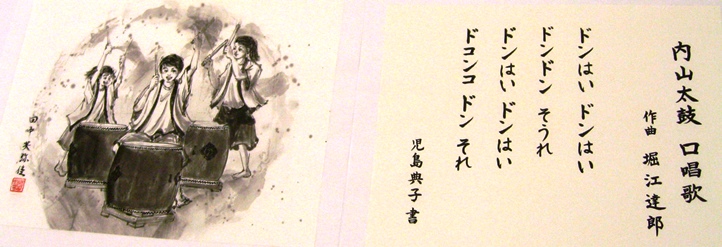 内山太鼓 口唱歌
作曲 堀江達郎
ドンはい ドンはい
ドンドン そうれ
ドンはい ドンはい
ドコンコ ドン それ
児島典子 書